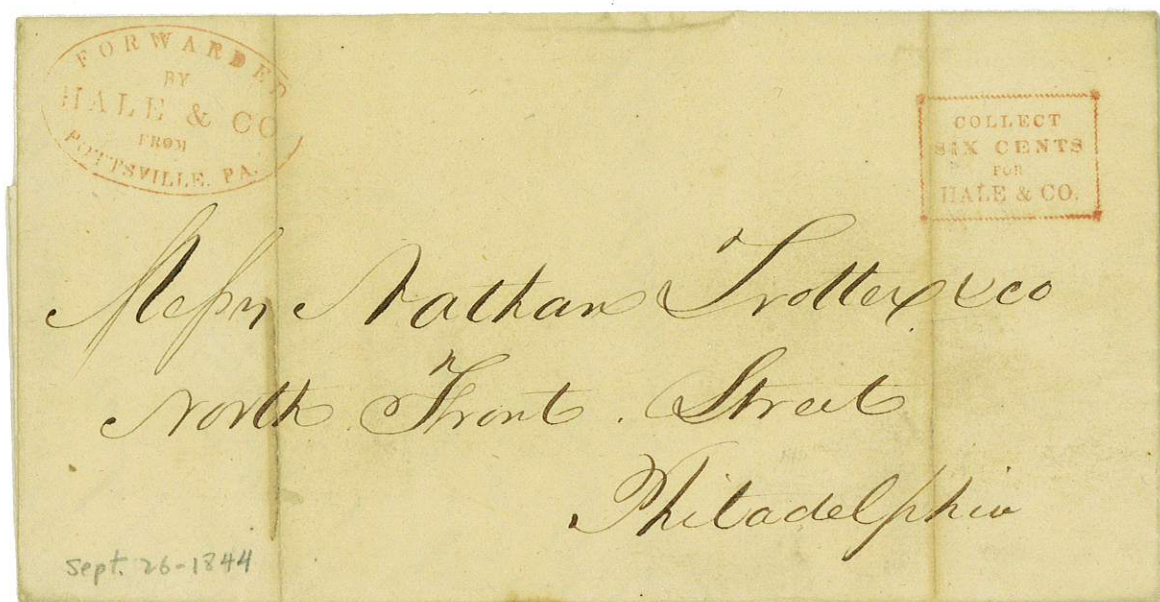 FORWARDED
BY
HALE & CO
FROM
POTTSVILLE, PA.
COLLECT
SIX CENTS
FOR
HALE & CO.
Messrs Nathan Trotter & co
North Front Street
Philadelphia
Sept. 26-1844